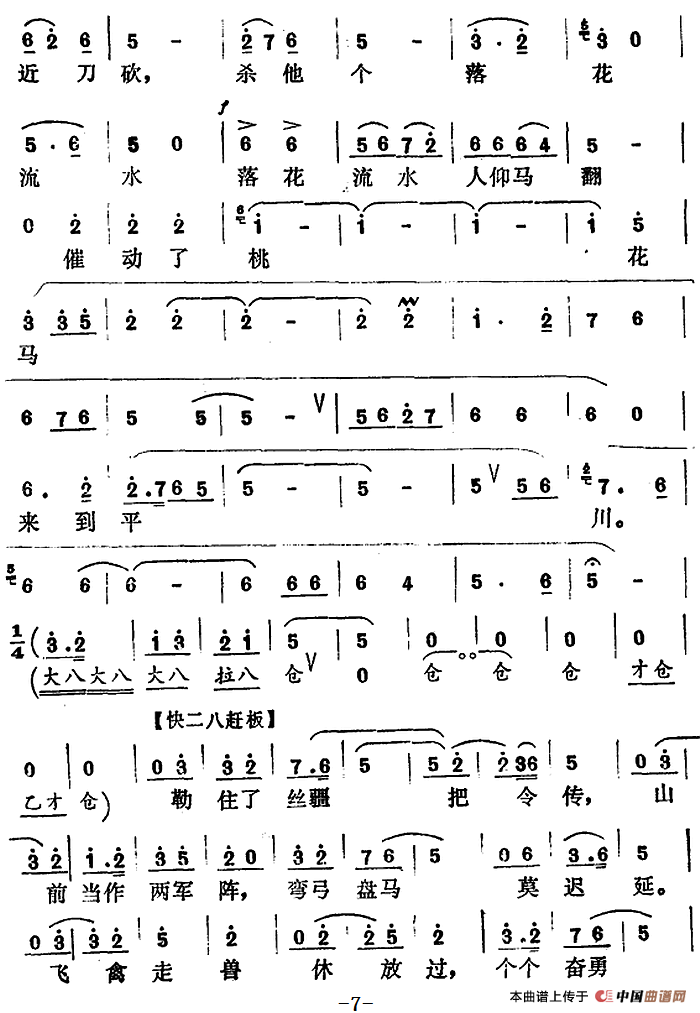 6 2 6 | 5 - | 2 7 6 | 5 - | 3 . 2 | 6 3 0
近 刀 砍， 杀 他 个 落 花
f
5 . 6 | 5 0 | 6 6 | 5 6 7 2 | 6 6 6 4 | 5 - |
流 水 落 花 流 水 人 仰 马 翻
0 2 | 2 2 | 6 1 - | 1 - | 1 - | 1 5
催 动 了 桃 花
3 3 5 | 2 2 | 2 - | 2 2 | 1 . 2 | 7 6 |
马
6 7 6 | 5 5 | 5 - V | 5 6 2 7 | 6 6 | 6 0 |
6 . 2 | 2 . 7 6 5 | 5 - | - - | 5 V 5 6 | 6 7 . 6
来 到 平 川。
5 6 6 | 6 - | 6 6 6 | 6 4 | 5 . 6 | 5 - |
1/4 ( 3 . 2 | 1 3 | 2 1 | 5 V | 5 | 0 | 0 | 0 | 0 |
(大八大八 大八 拉八 仓 0 仓 仓 仓 才仓
【快二八赶板】
0 | 0 | 0 3 | 3 2 | 7 . 6 | 5 | 5 2 | 2 3 6 | 5 | 0 3 |
乙才 仓) 勒 住了 丝疆 把 令 传， 山
3 2 | 1 . 2 | 3 5 | 2 0 | 3 2 | 7 6 | 5 | 0 6 | 3 . 6 | 5 |
前 当作 两军 阵， 弯弓 盘马 莫 迟 延。
0 3 | 3 2 | 5 | 2 | 0 2 | 2 5 | 2 | 3 . 2 | 7 6 | 5 |
飞 禽 走 兽 休 放 过， 个个 奋勇
-7-
本曲谱上传于 中国曲谱网